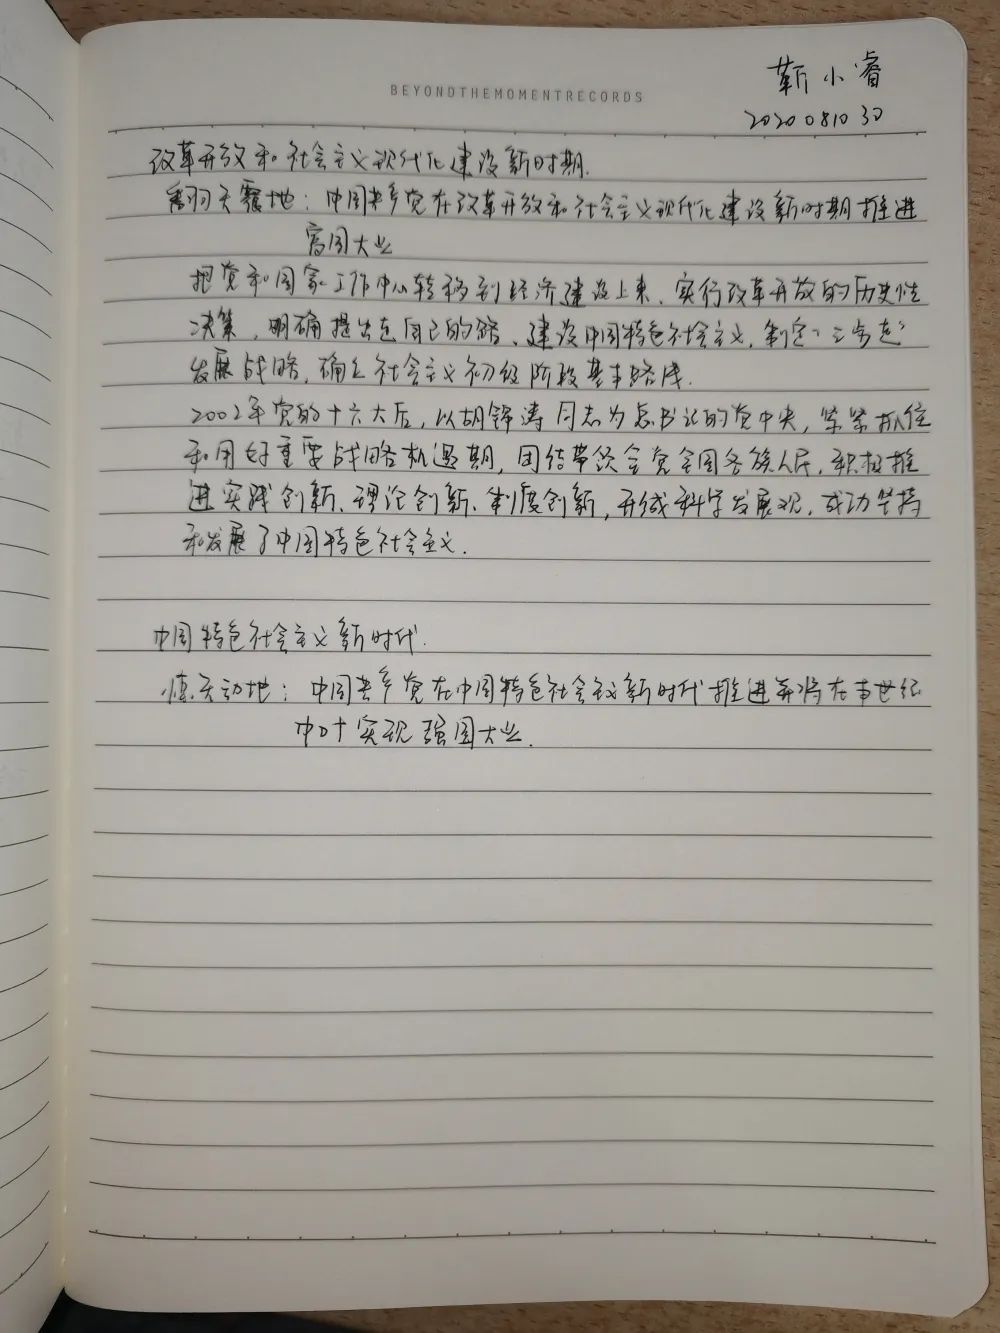 BEYONDTHEMOMENTRECORDS
靳小睿
2020081030
改革开放和社会主义现代化建设新时期.
翻天覆地：中国共产党在改革开放和社会主义现代化建设新时期推进
富国大业
把党和国家工作中心转移到经济建设上来、实行改革开放的历史性
决策，明确提出走自己的路、建设中国特色社会主义，制定“三步走”
发展战略，确立社会主义初级阶段基本路线.
2002年党的十六大后，以胡锦涛同志为总书记的党中央，紧紧抓住
和用好重要战略机遇期，团结带领全党全国各族人民，积极推
进实践创新、理论创新、制度创新，形成科学发展观，成功坚持
和发展了中国特色社会主义.
中国特色社会主义新时代.
惊天动地：中国共产党在中国特色社会主义新时代推进并将在本世纪
中叶实现强国大业.